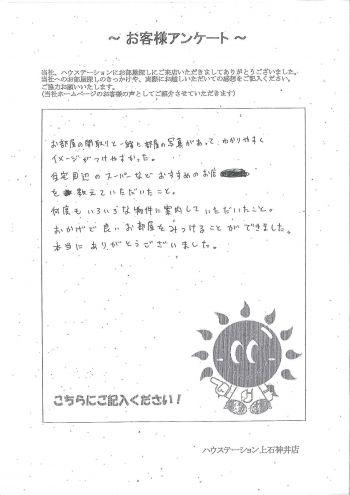 ～ お客様アンケート ～
当社、ハウステーションにお部屋探しにご来店いただきましてありがとうございました。
当社へのお部屋探しのきっかけや、実際にお越しいただいての感想をご記入ください。
ご協力お願いいたします。
(当社ホームページのお客様の声としてご紹介させていただきます)
お部屋の間取りと一緒に部屋の写真があって、わかりやすく
イメージがつけやすかった。
住宅周辺のスーパーなど おすすめのお店
を 教えていただいたこと。
何度も いろいろな物件に案内して いただいたこと。
おかげで 良い お部屋を みつけること ができました。
本当に ありがとうございました。
こちらにご記入ください！
ハウステーション上石神井店